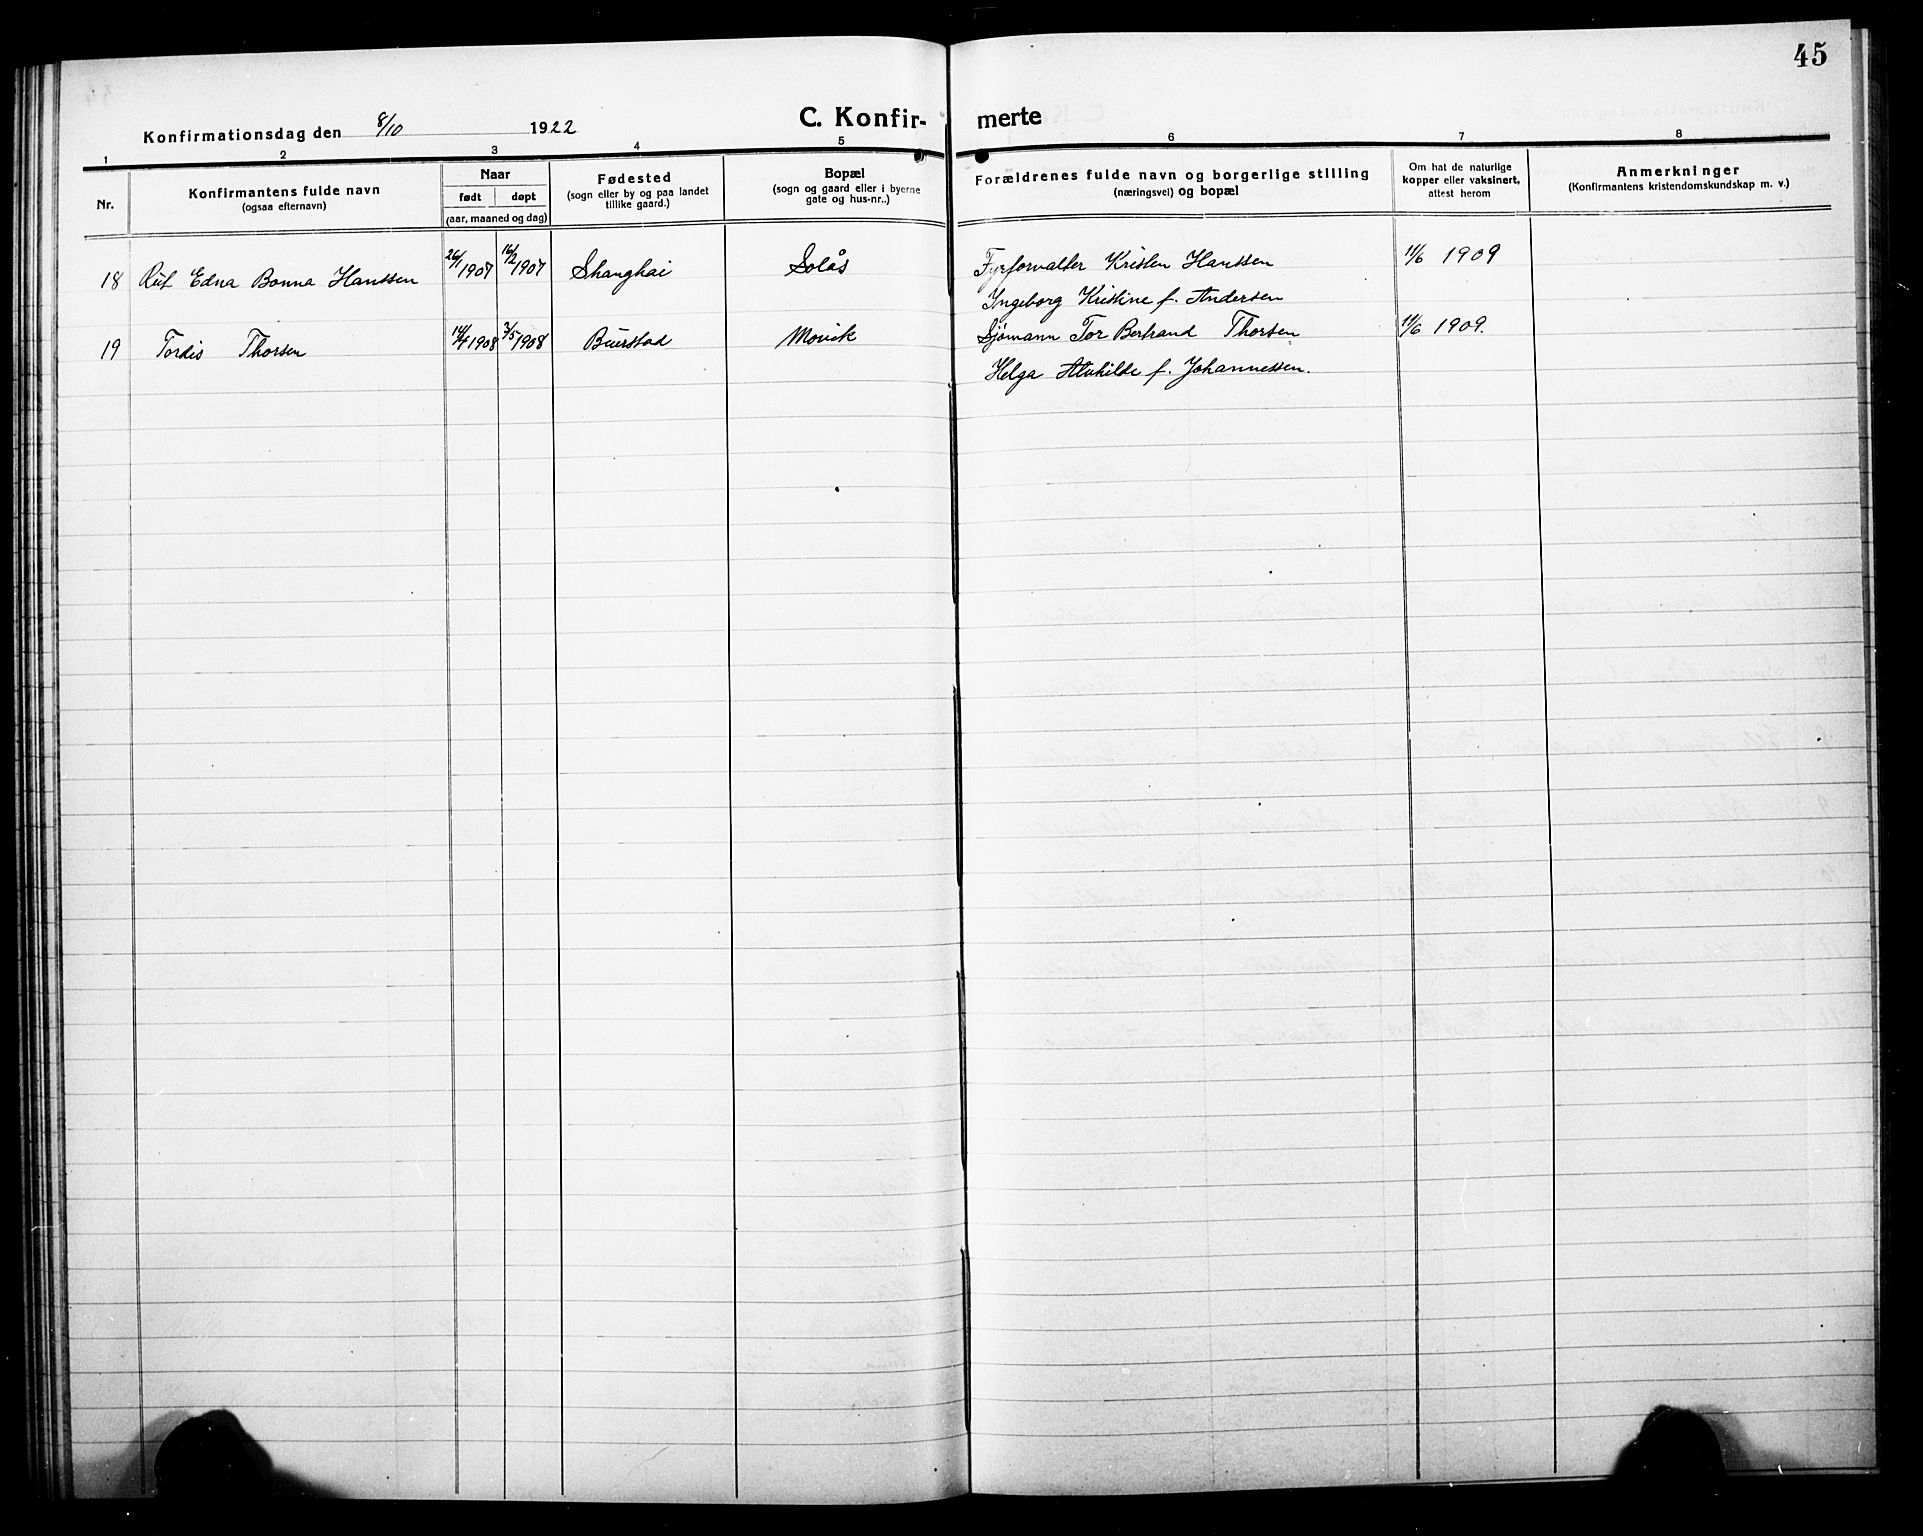 45
Konfirmationsdag den 8/10 1922
C. Konfir- merte
1 2 3 4 5 6 7 8
Nr.
Konfirmantens fulde navn
(ogsaa efternavn)
Naar
født døpt
(aar, maaned og dag)
Fødested
(sogn eller by og paa landet
tillike gaard.)
Bopæl
(sogn og gaard eller i byerne
gate og hus-nr..)
Forældrenes fulde navn og borgerlige stilling
(næringsvei) og bopæl
Om hat de naturlige
kopper eller vaksinert,
attest herom
Anmerkninger
(Konfirmantens kristendomskundskap m. v.)
18 Rut Edna Bonna Hanssen 26/1 1907 16/2 1907 Shanghai Solås Fyrforvalter Kristen Hanssen 11/6 1909
Ingeborg Kristine f. Andersen
19 Tordis Thorsen 14/4 1908 3/5 1908 Buerstad Movik Sjømann Tor Bertrand Thorsen 11/6 1909.
Helga Alvhilde f. Johannessen.